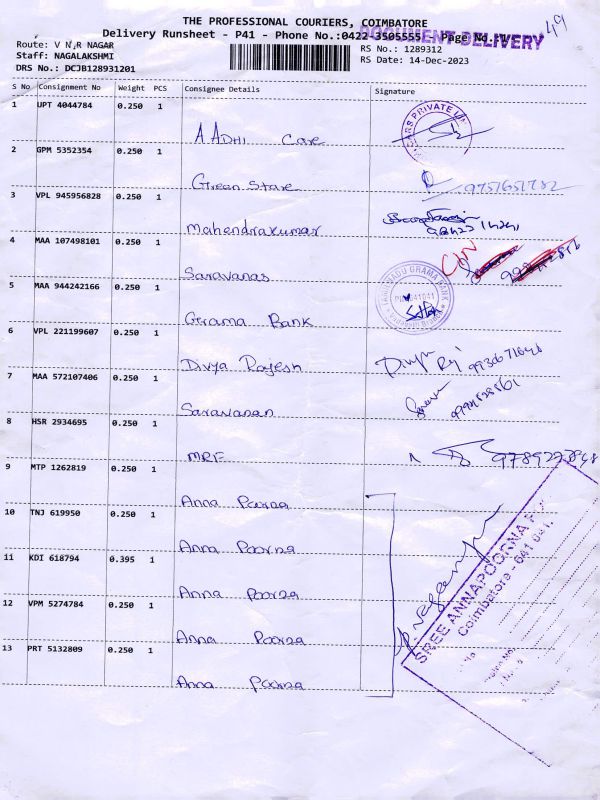 49
THE PROFESSIONAL COURIERS, COIMBATORE
Delivery Runsheet - P41 - Phone No.:0422-3505555 - Page No.:1/1
DOCUMENT DELIVERY
Route: V N R NAGAR
Staff: NAGALAKSHMI
RS No.: 1289312
DRS No.: DCJB128931201
RS Date: 14-Dec-2023
S No Consignment No Weight PCS Consignee Details Signature
1 UPT 4044784 0.250 1
AADHI Care
PRIVATE
2 GPM 5352354 0.250 1
Green Stare
9751651782
3 VPL 945956828 0.250 1
Mahendrakumar
4 MAA 107498101 0.250 1
Saravanas
C/N
5 MAA 944242166 0.250 1
Grama Bank
GRAMA BANK
641041
6 VPL 221199607 0.250 1
Divya Rajesh
7 MAA 572107406 0.250 1
Saravanan
8 HSR 2934695 0.250 1
MRF
9 MTP 1262819 0.250 1
Anna Poorna
10 TNJ 619950 0.250 1
Anna Poorna
11 KDI 618794 0.395 1
Anna Poorna
12 VPM 5274784 0.250 1
Anna Poorna
13 PRT 5132809 0.250 1
Anna Poorna
SREE ANNAPOORNA
Coimbatore - 641 041.